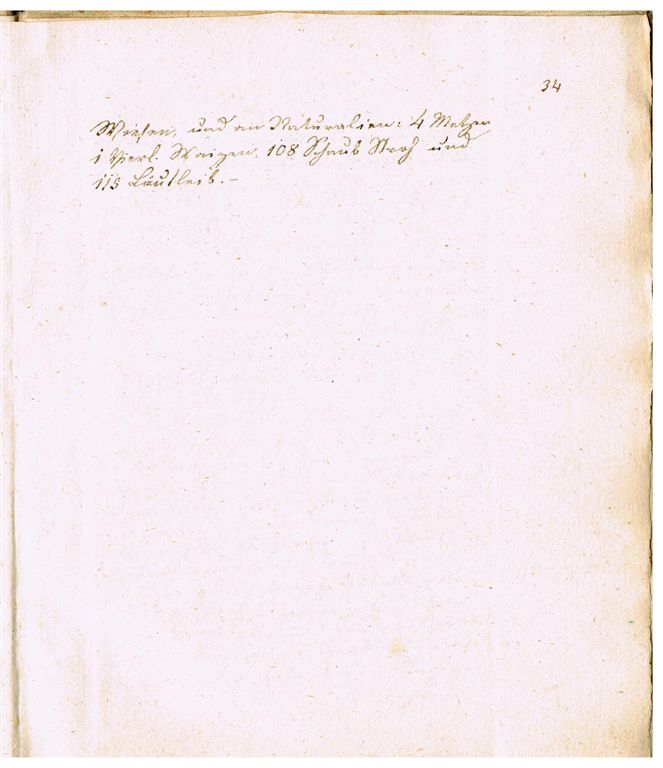 34
Wiesen, und an Naturalien: 4 Metzen
1 Vierl. Waizen, 108 Schaub Stroh und
115 Läutleib. –